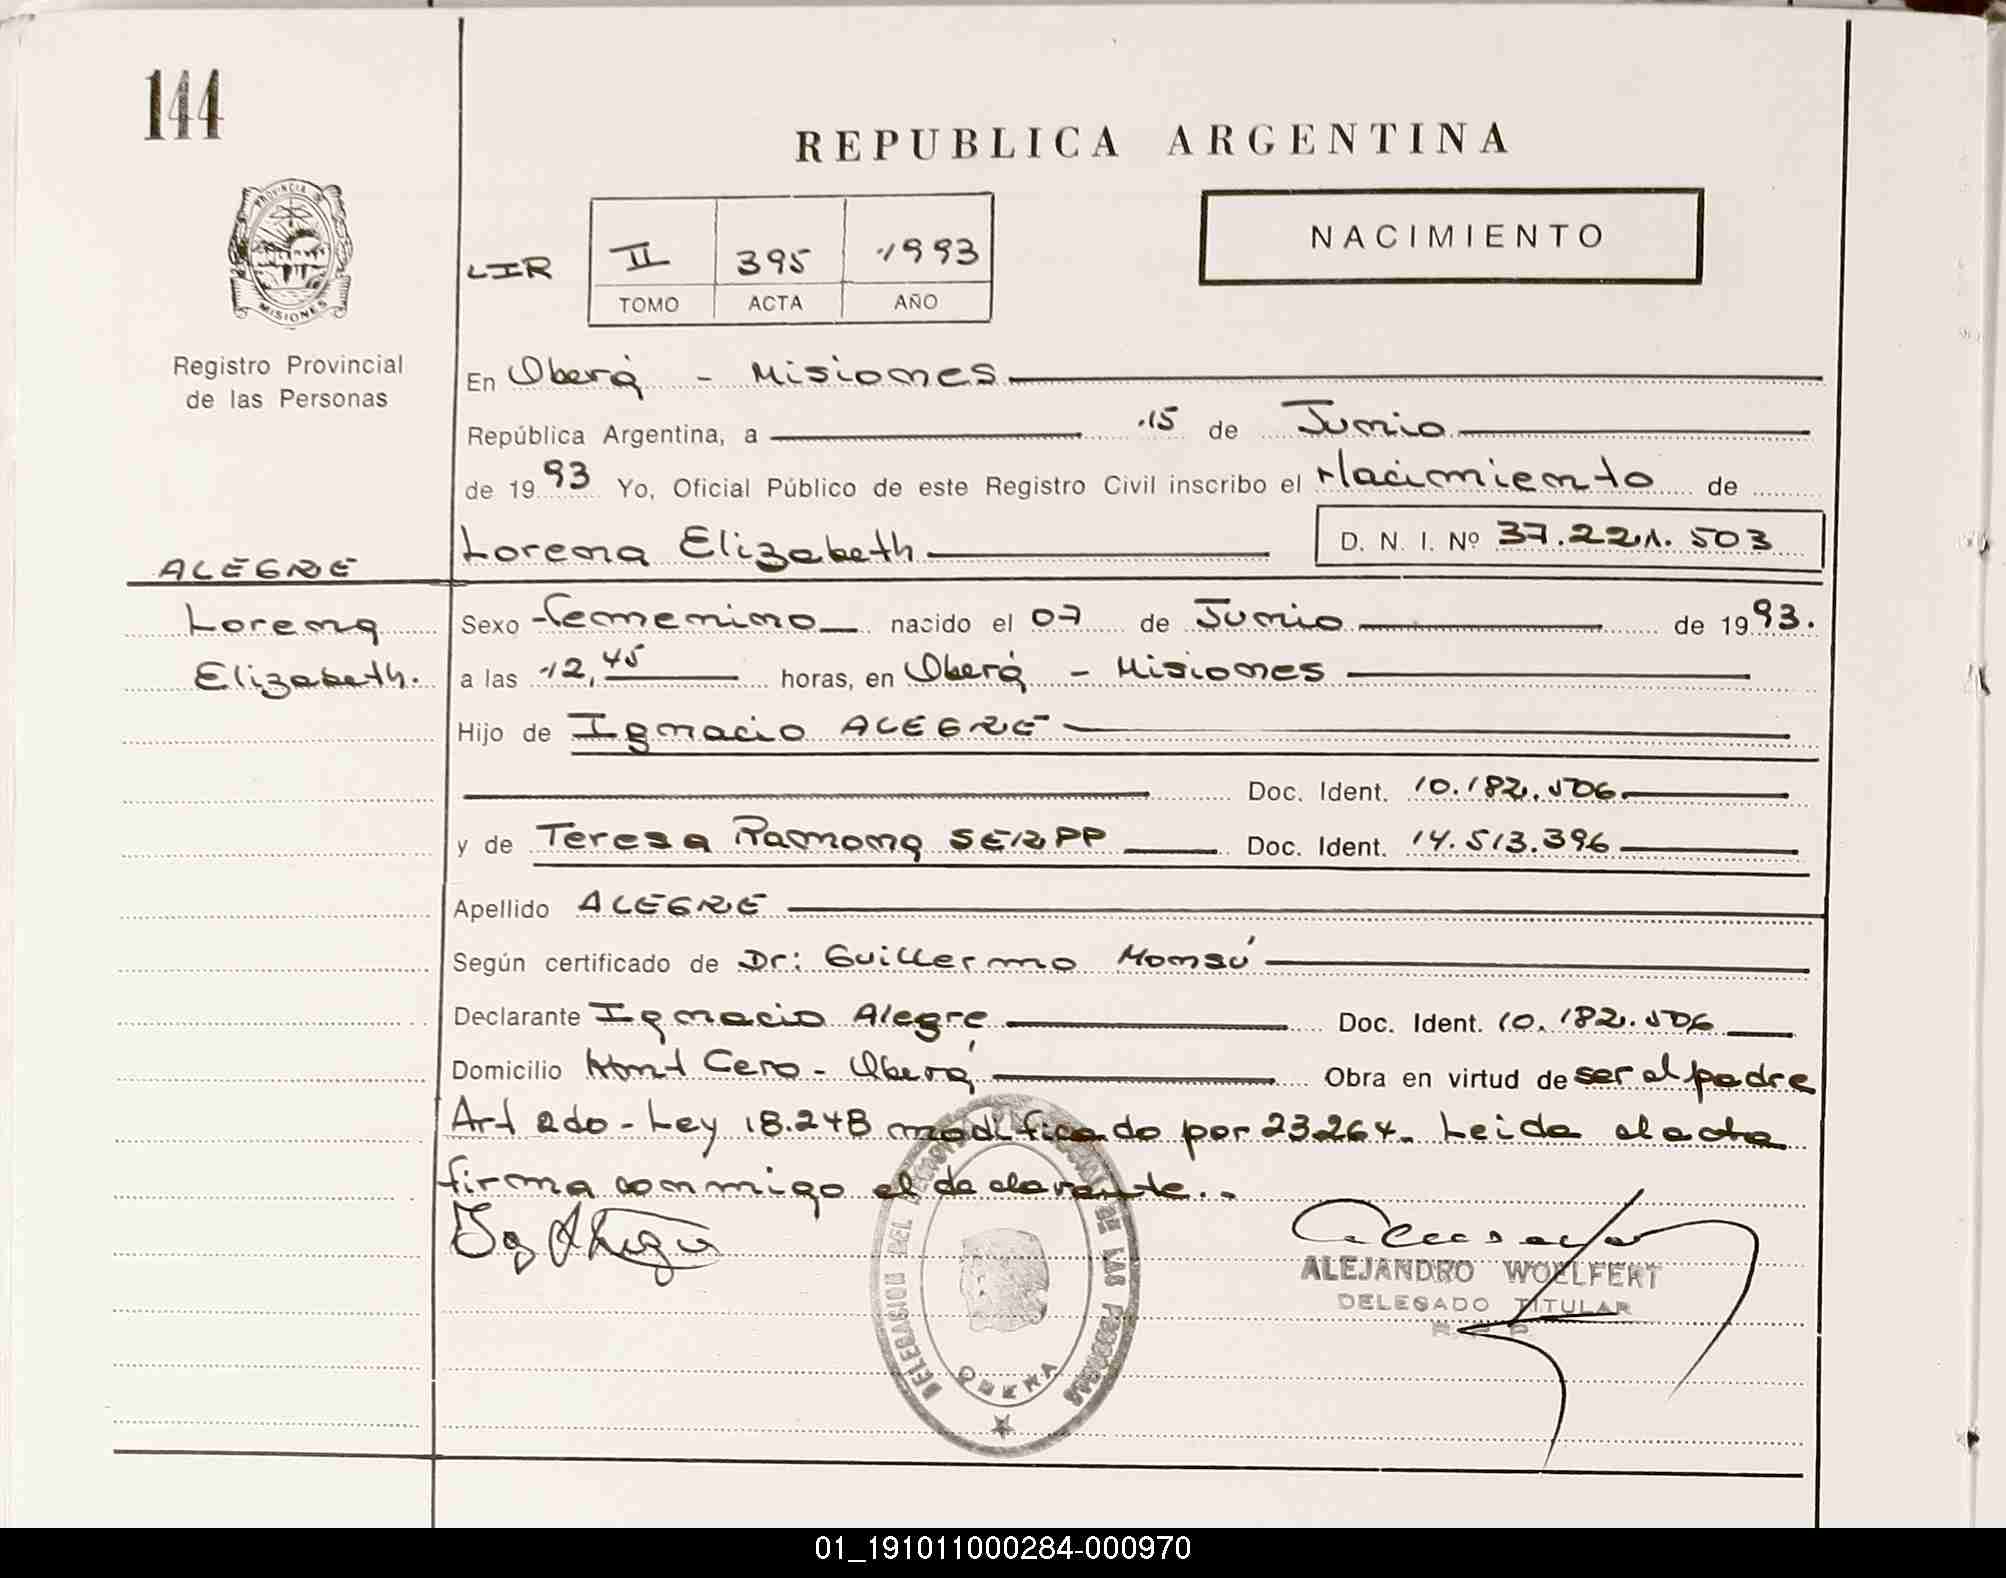 144
REPUBLICA ARGENTINA
PROVINCIA DE
MISIONES
NACIMIENTO
LIR II 395 1993
TOMO ACTA AÑO
Registro Provincial
de las Personas
En Oberá - Misiones
República Argentina, a 15 de Junio
de 1993 Yo, Oficial Público de este Registro Civil inscribo el Nacimiento de
Lorena Elizabeth D. N. I. Nº 37.221.503
ALEGRE
Lorena
Elizabeth.
Sexo femenino nacido el 07 de Junio de 1993.
a las 12,45 horas, en Oberá - Misiones
Hijo de Ignacio ALEGRE
Doc. Ident. 10.182.506
y de Teresa Ramona SERPP Doc. Ident. 14.513.396
Apellido ALEGRE
Según certificado de Dr: Guillermo Monsú
Declarante Ignacio Alegre Doc. Ident. 10.182.506
Domicilio Cero - Oberá Obra en virtud de ser el padre
Art 2do - Ley 18.248 modificado por 23.264. Leida el acta
firma conmigo el declarante..
ALEJANDRO WOELFERT
DELEGADO TITULAR
DELEGACION DEL REGISTRO PROVINCIAL DE LAS PERSONAS
OBERA
01_191011000284-000970